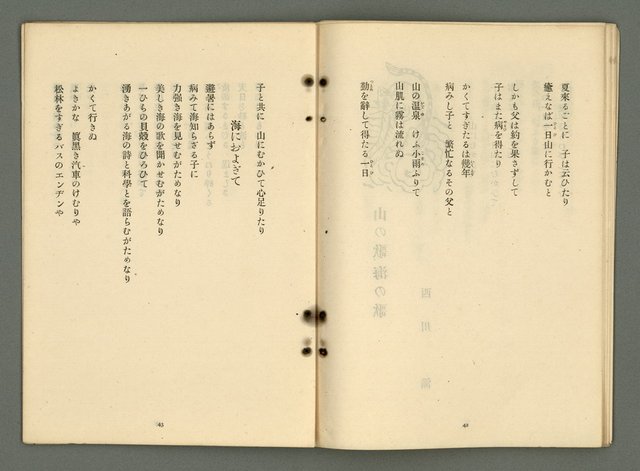 夏來るごとに　子は云ひたり
癒えなば一日山に行かむと
しかも父は約を果さずして
子はまた病を得たり
かくてすぎたるは幾年
病みし子と　繁忙なるその父と
山の温泉　けふ小雨ふりて
山肌に霧は流れぬ
勤を辭して得たる一日
48
子と共に　山にむかひて心足りたり
海におよぎて
避暑にはあらず
病みて海知らざる子に
力强き海を見せむがためなり
美しき海の歌を聞かせむがためなり
一ひらの貝殼をひろひて
湧きあがる海の詩と科學とを語らむがためなり
かくて行きぬ
よきかな　眞黑き汽車のけむりや
松林をすぎるバスのエンヂンや